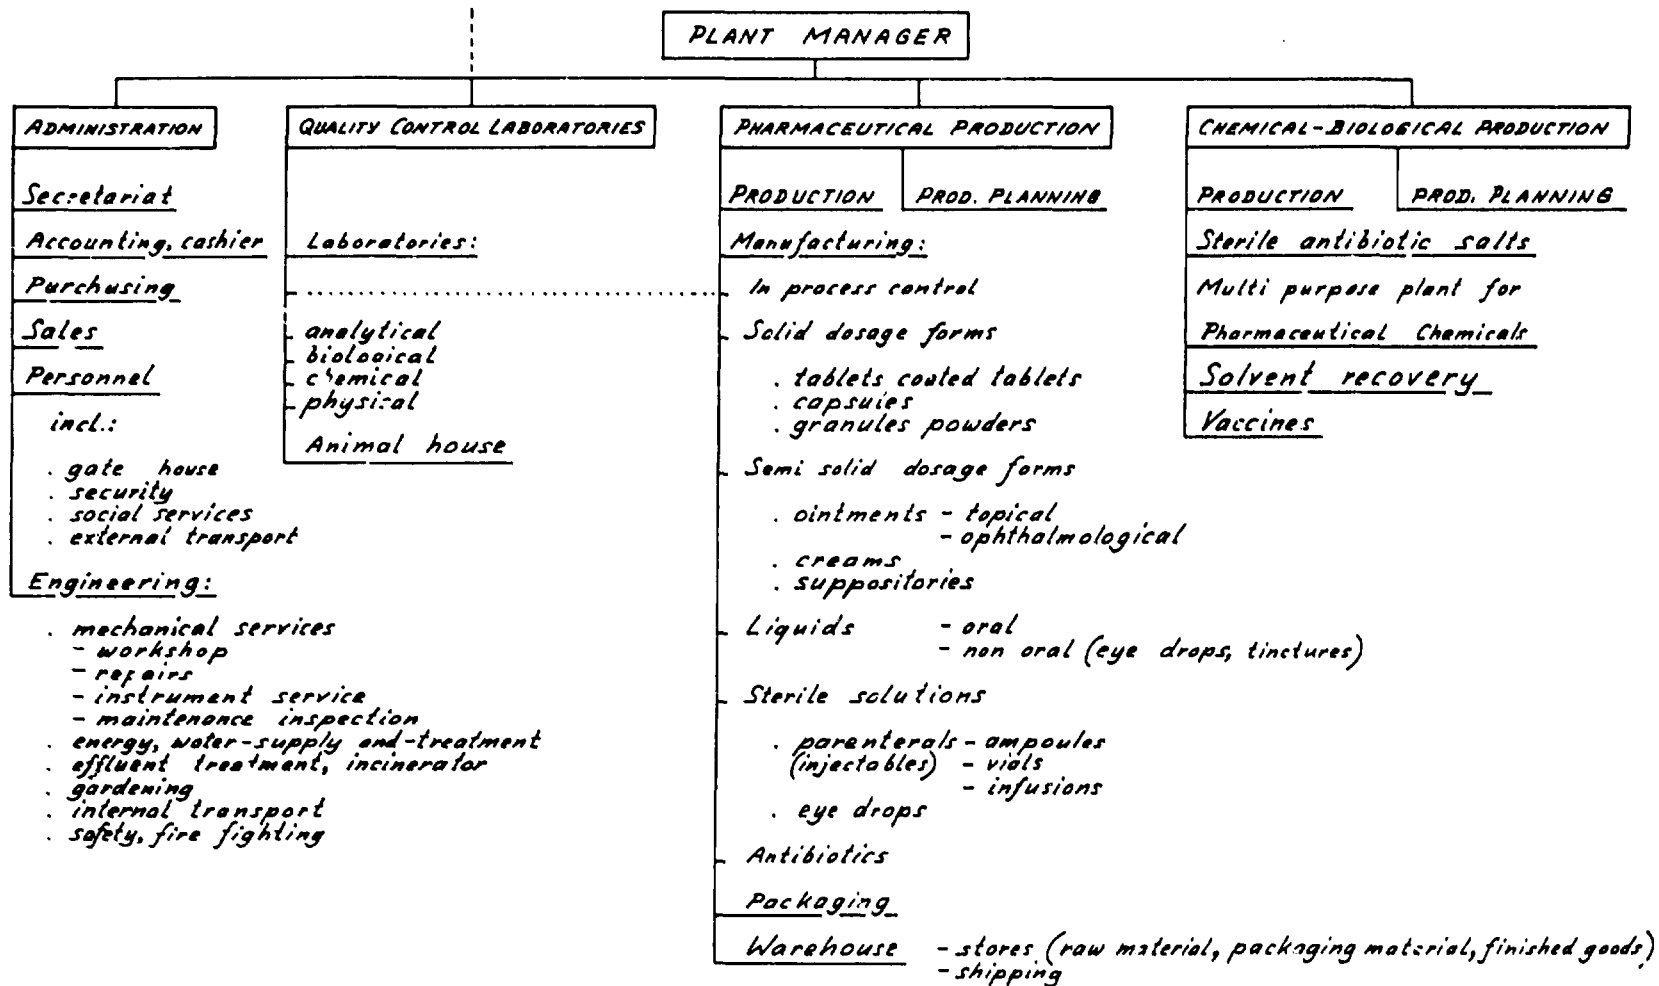 PLANT MANAGER
ADMINISTRATION
Secretariat
Accounting, cashier
Purchasing
Sales
Personnel
incl.:
. gate house
. security
. social services
. external transport
Engineering:
. mechanical services
- workshop
- repairs
- instrument service
- maintenance inspection
. energy, water-supply and-treatment
. effluent treatment, incinerator
. gardening
. internal transport
. safety, fire fighting
QUALITY CONTROL LABORATORIES
Laboratories:
analytical
biological
chemical
physical
Animal house
PHARMACEUTICAL PRODUCTION
PRODUCTION
PROD. PLANNING
Manufacturing:
In process control
Solid dosage forms
. tablets coated tablets
. capsules
. granules powders
Semi solid dosage forms
. ointments - topical
- ophthalmological
. creams
. suppositories
Liquids - oral
- non oral (eye drops, tinctures)
Sterile solutions
. parenterals - ampoules
(injectables) - vials
- infusions
. eye drops
Antibiotics
Packaging
Warehouse - stores (raw material, packaging material, finished goods)
- shipping
CHEMICAL-BIOLOGICAL PRODUCTION
PRODUCTION
PROD. PLANNING
Sterile antibiotic salts
Multi purpose plant for
Pharmaceutical Chemicals
Solvent recovery
Vaccines